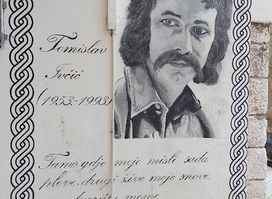 Tomislav
Ivčić
(1953-1993)
Tamo gdje moje misli sada
plove drugi žive moje snove,